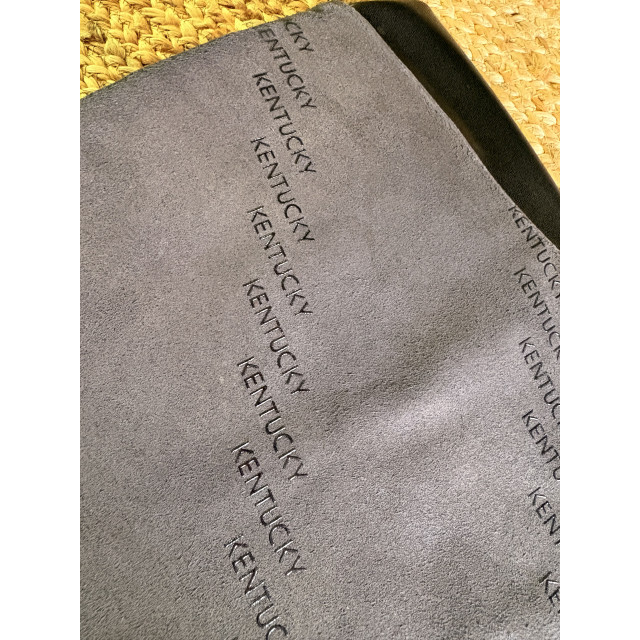 CKY
KENTUCKY
KENTUCKY
KENTUCKY
KENTUCKY
KENTUCKY
KENTUCKY
KENTUCKY
KENTUCKY
KENTUCKY
KENTUCKY
KENTUC
KENTU
KEN
KE